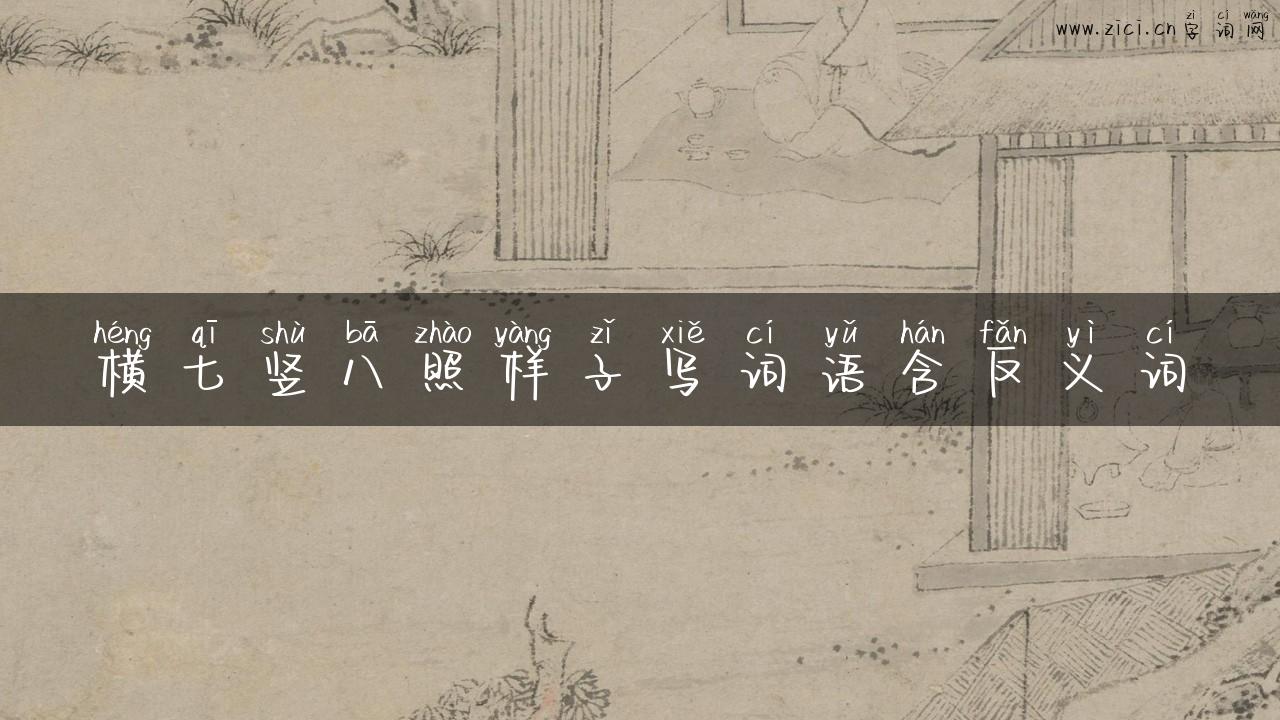 zì cí wǎng
www.zici.cn 字词网
héng qī shù bā zhào yàng zǐ xiě cí yǔ hán fǎn yì cí
横七竖八照样子写词语含反义词